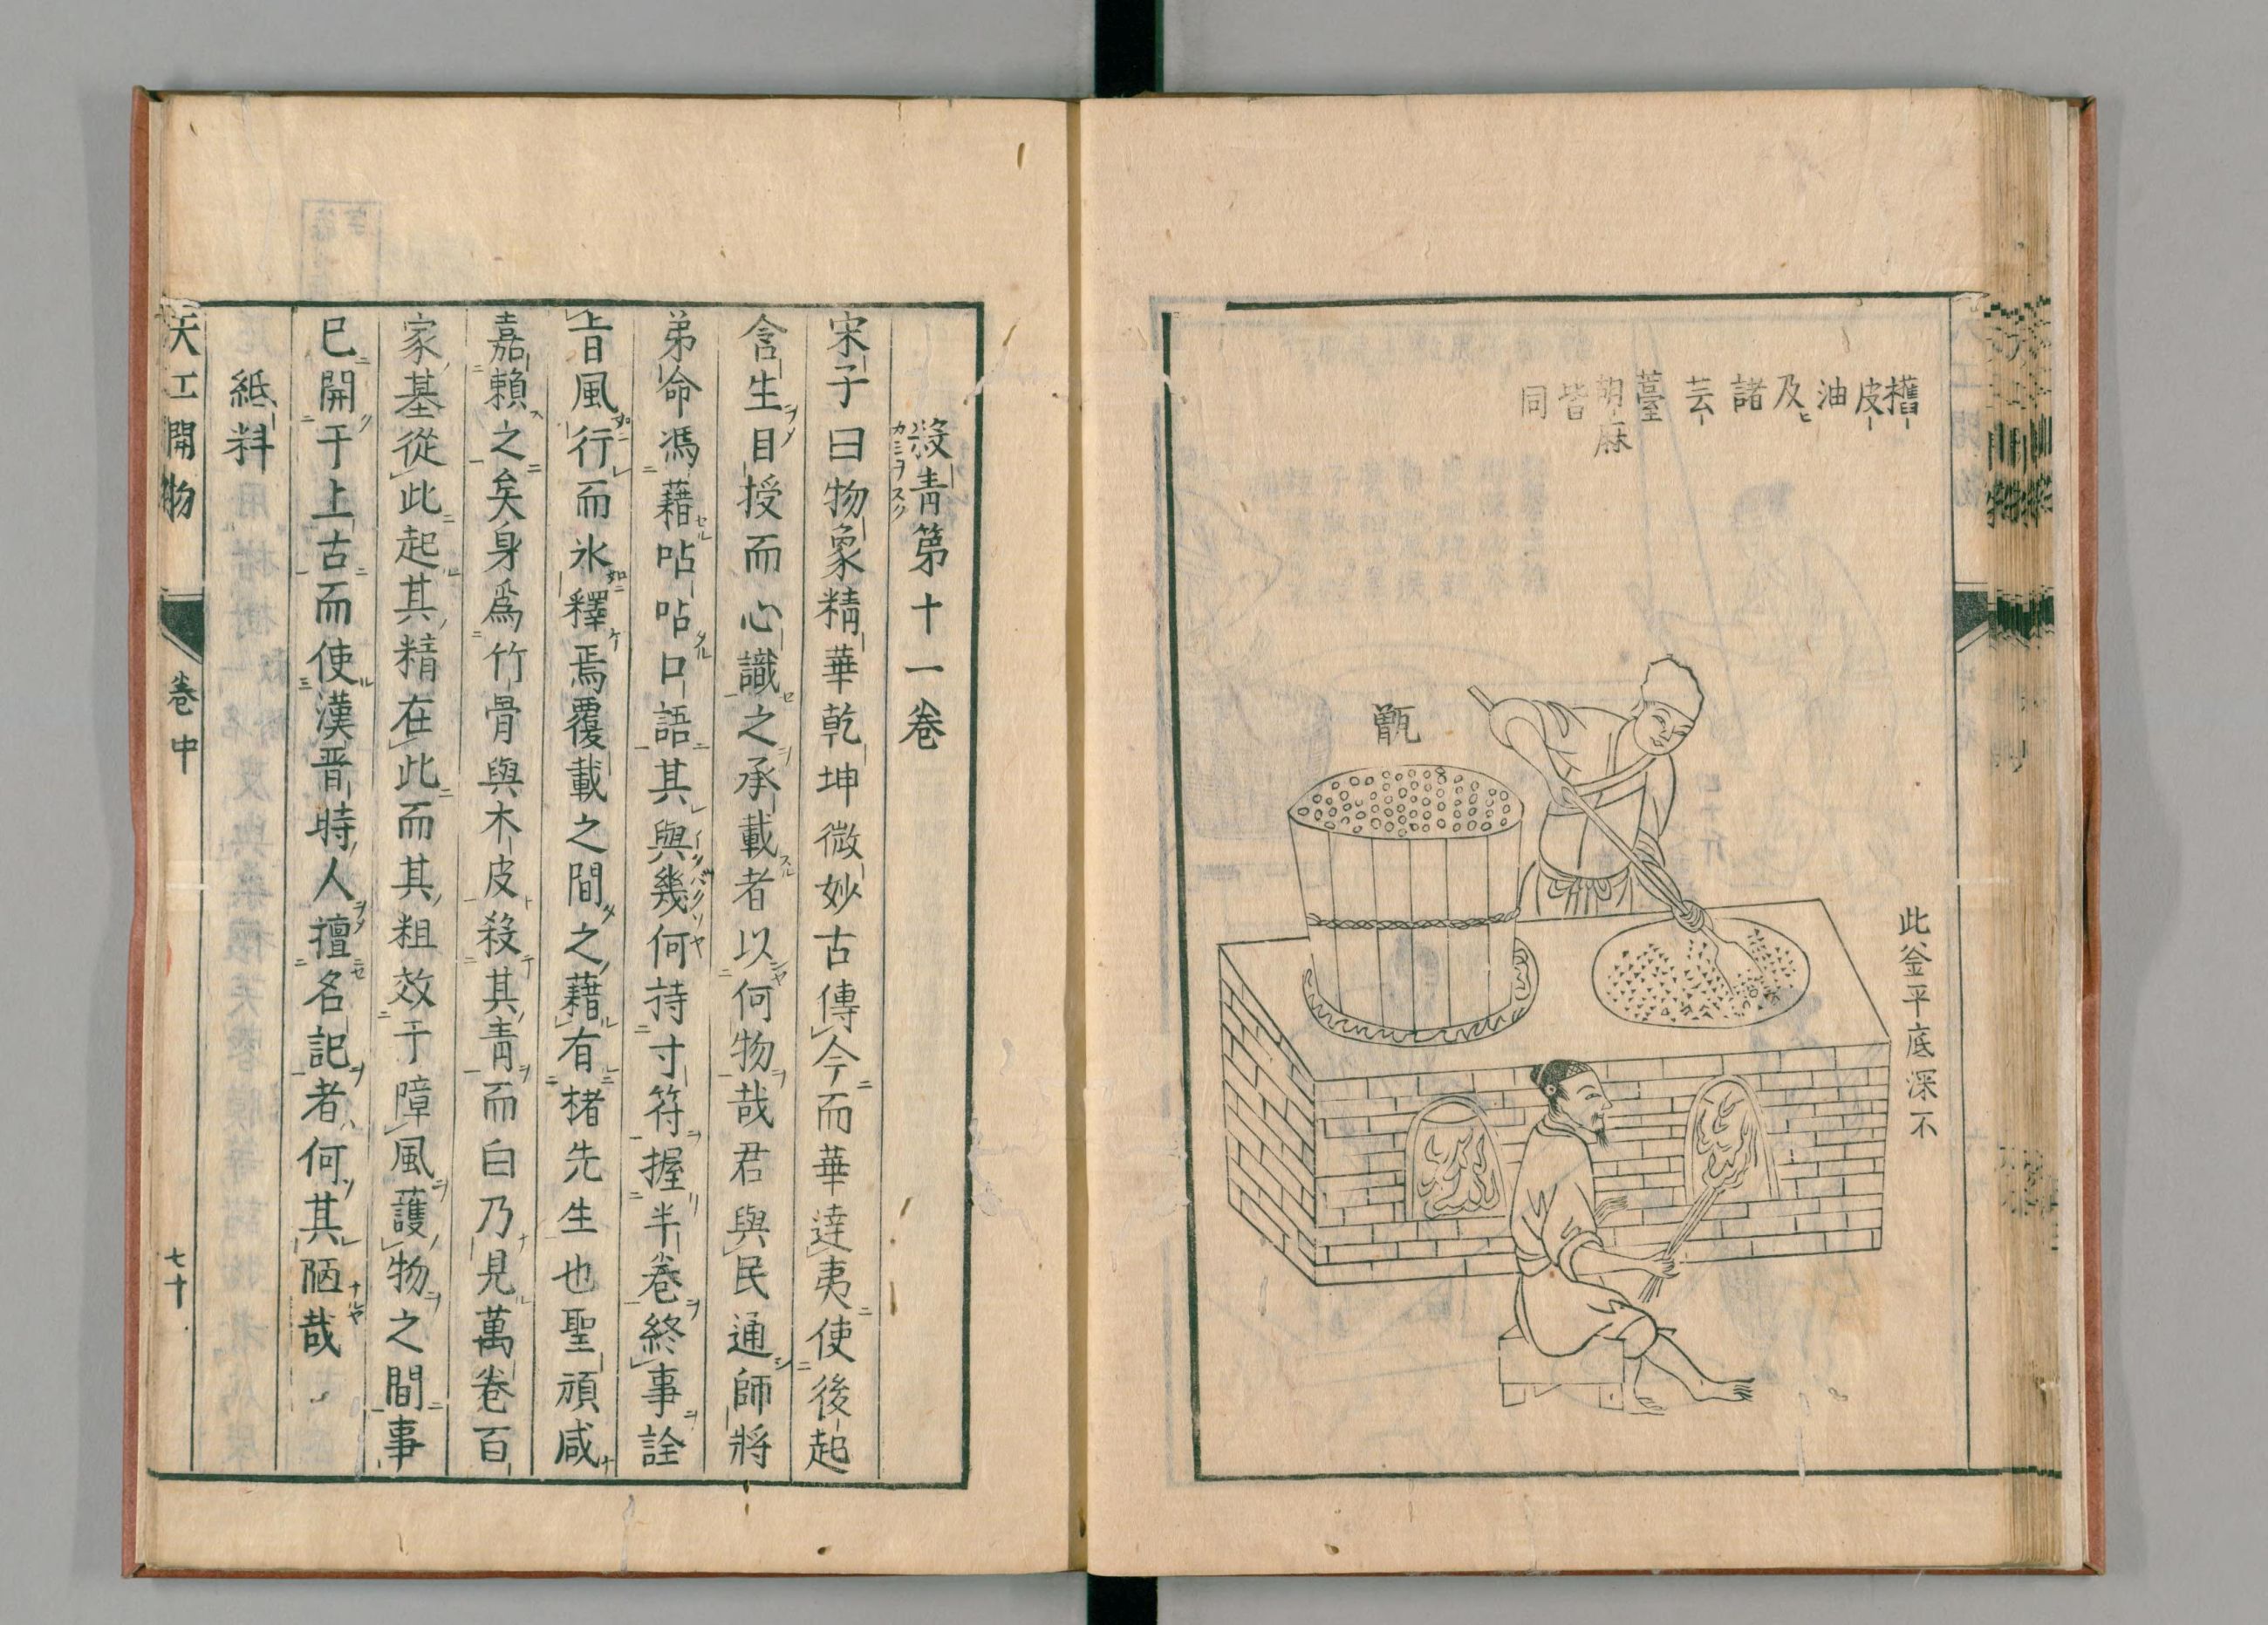 皮油及諸芸薹胡麻皆同
甑
此釜平底深不
殺青第十一卷
カミヲスク
宋子曰物象精華乾坤微妙古傳今而華達夷使後起
含生目授而心識之承載者以何物哉君與民通師將
弟命馮藉呫呫口語其與幾何持寸符握半卷終事詮
旨風行而氷釋焉覆載之間之藉有楮先生也聖頑咸
嘉賴之矣身爲竹骨與木皮殺其青而白乃見萬卷百
家基從此起其精在此而其粗效于障風護物之間事
巳開于上古而使漢晋時人擅名記者何其陋哉
紙料
天工開物 卷中 七十